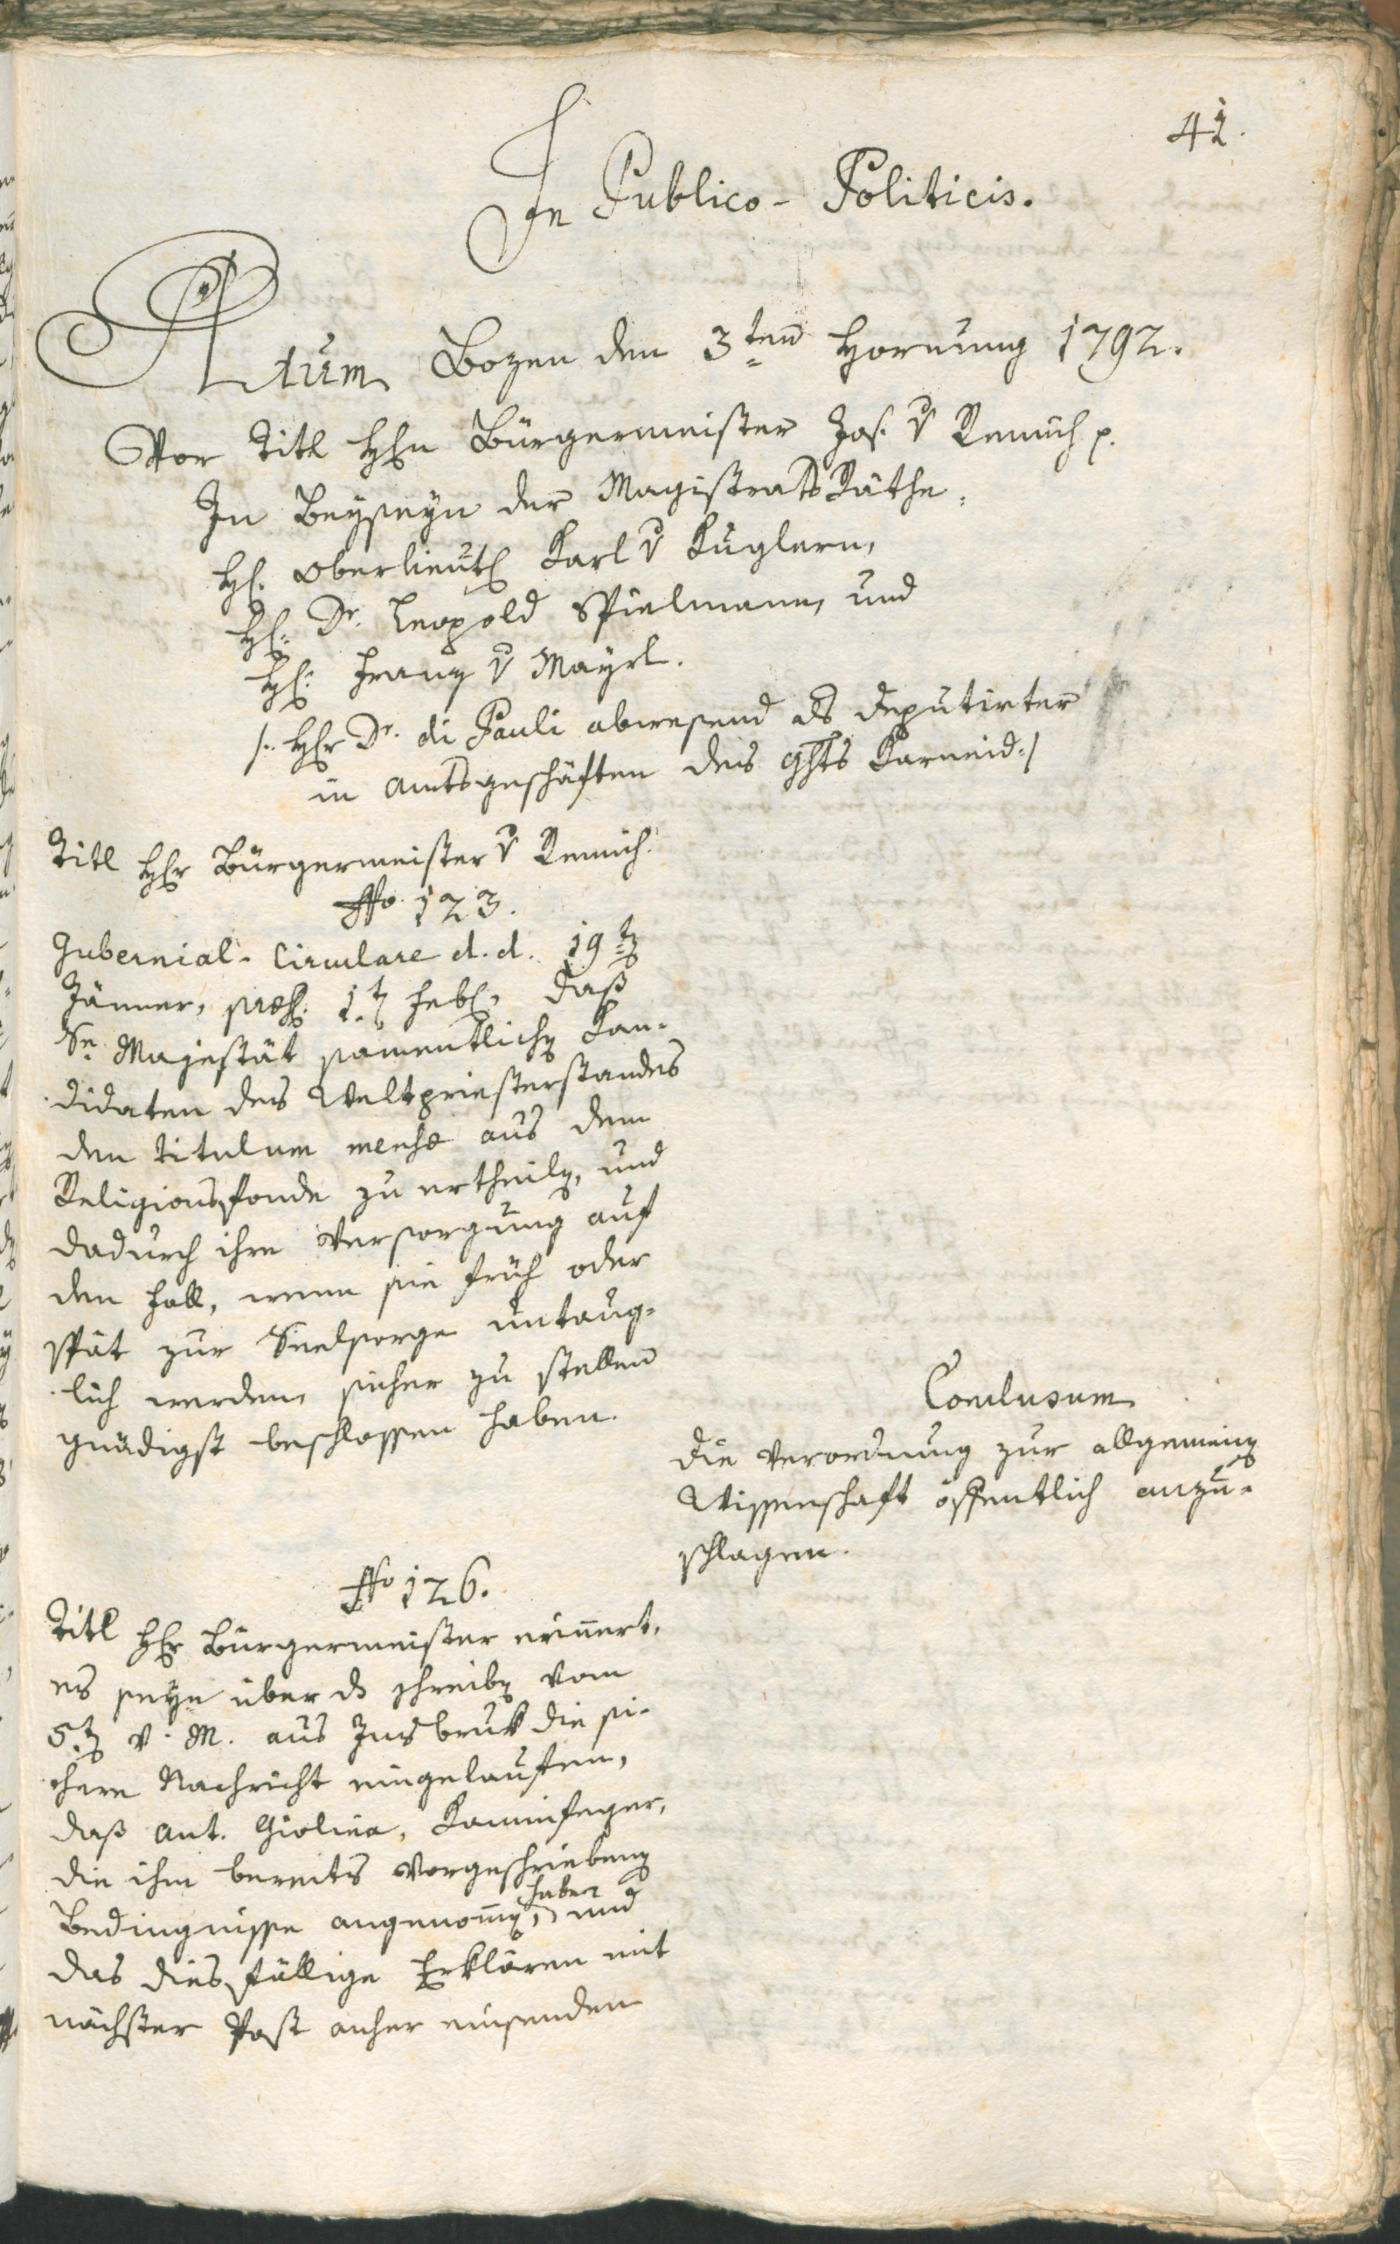 42.
In Publico-Politicis.
Actum Bozen den 3ten Hornung 1792.
Vor Titl HEn Bürgermeister Jos. v Remich p.
In Beyseyn der Magistrats Räthe,
H. Oberlieut Karl v Kuglern,
H. Dr. Leopold Spielmann, und
H. Franz v Mayrl.
/: HEr Dr. di Pauli abwesend als Deputirter
in Amtsgeschäften des Ghts Karneid :/
Titl HEr Bürgermeister v Remich.
No 123.
Gubernial-Circulare d. d. 19t
Jänner, præs. 1t Feb, daß
Se Majestät samentliche Kan-
didaten des Weltpriesterstandes
den titulum mensæ aus dem
Religionsfonde zu ertheilen, und
dadurch ihre Versorgung auf
den Fall, wenn sie früh oder
spät zur Seelsorge untaug-
lich werden, sicher zu stellen
gnädigst beschlossen haben.
Conclusum
Die Verordnung zur allgemeinen
Wissenschaft öffentlich anzu-
schlagen.
No 126.
Titl HEr Bürgermeister erinnert,
es seye über das Schreiben vom
5t v. M. aus Insbruk die si-
chere Nachricht eingelaufen,
daß Ant. Giolina, Kaminfeger,
die ihm bereits vorgeschriebenen
Bedingnisse angenommen haber, und
das diesfällige Erklären mit
nächster Post anher einsenden